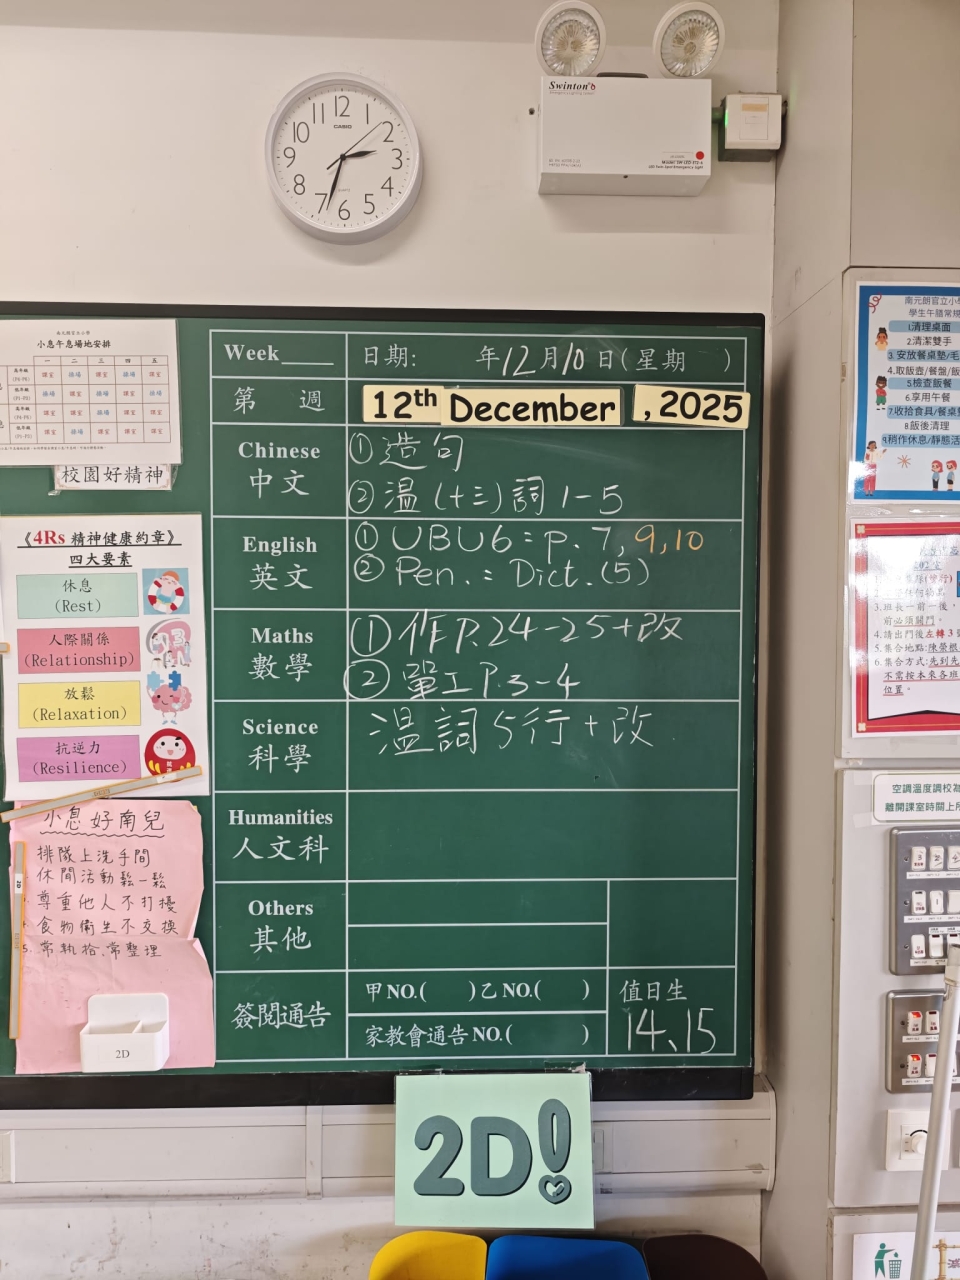 Swinton
CASIO
12 1 2 3 4 5 6 7 8 9 10 11
小息午息場地安排
一 二 三 四 五
校園好精神
《4Rs 精神健康約章》
四大要素
休息
(Rest)
人際關係
(Relationship)
放鬆
(Relaxation)
抗逆力
(Resilience)
小息好南兒
排隊上洗手間
休閒活動鬆一鬆
尊重他人不打擾
食物衛生不交換
5. 常執拾、常整理
2D
Week
日期: 年12月10日(星期 )
第 週
12th December , 2025
Chinese
中文
① 造句
② 溫(十三)詞 1-5
English
英文
① UBU6 : p. 7, 9, 10
② Pen. : Dict. (5)
Maths
數學
① 作 P.24-25+改
② 單工 P.3-4
Science
科學
溫詞 5行+改
Humanities
人文科
Others
其他
簽閱通告
甲NO.( )乙NO.( )
家教會通告NO.( )
值日生
14、15
2D!
南元朗官立小學
學生午膳常規
1.清理桌面
2.清潔雙手
3.安放餐桌墊/毛
4.取飯壺/餐盤/飯
5.檢查飯餐
6.享用午餐
7.收拾食具/餐桌墊
8.飯後清理
9.稍作休息/靜態活
3.班長一前一後，
前必須關門。
4.請出門後左轉3
5.集合地點:陳榮根
6.集合方式:先到先
不需按本來各班
位置。
空調溫度調校為
離開課室時關上所